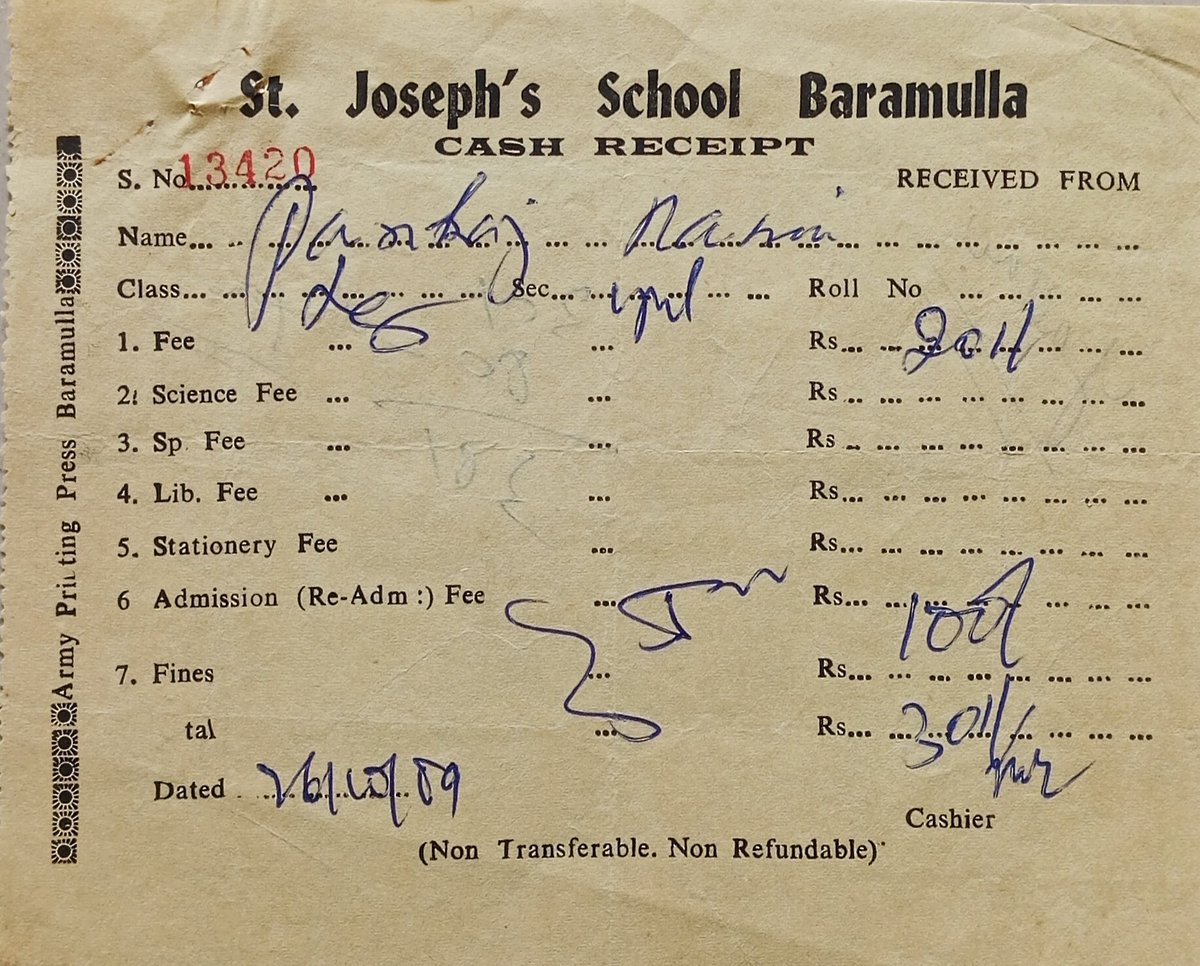 St. Joseph's School Baramulla
CASH RECEIPT
S. No. 13420 RECEIVED FROM
Name... Pankaj
Class... Sec... Roll No ...
1. Fee ... ... Rs...
2. Science Fee ... ... Rs...
3. Sp. Fee ... ... Rs...
4. Lib. Fee ... ... Rs...
5. Stationery Fee ... Rs...
6 Admission (Re-Adm:) Fee ... Rs... 100/
7. Fines ... Rs...
tal ... Rs... 301/
Dated 26/10/89
Cashier
(Non Transferable. Non Refundable)
Army Printing Press Baramulla